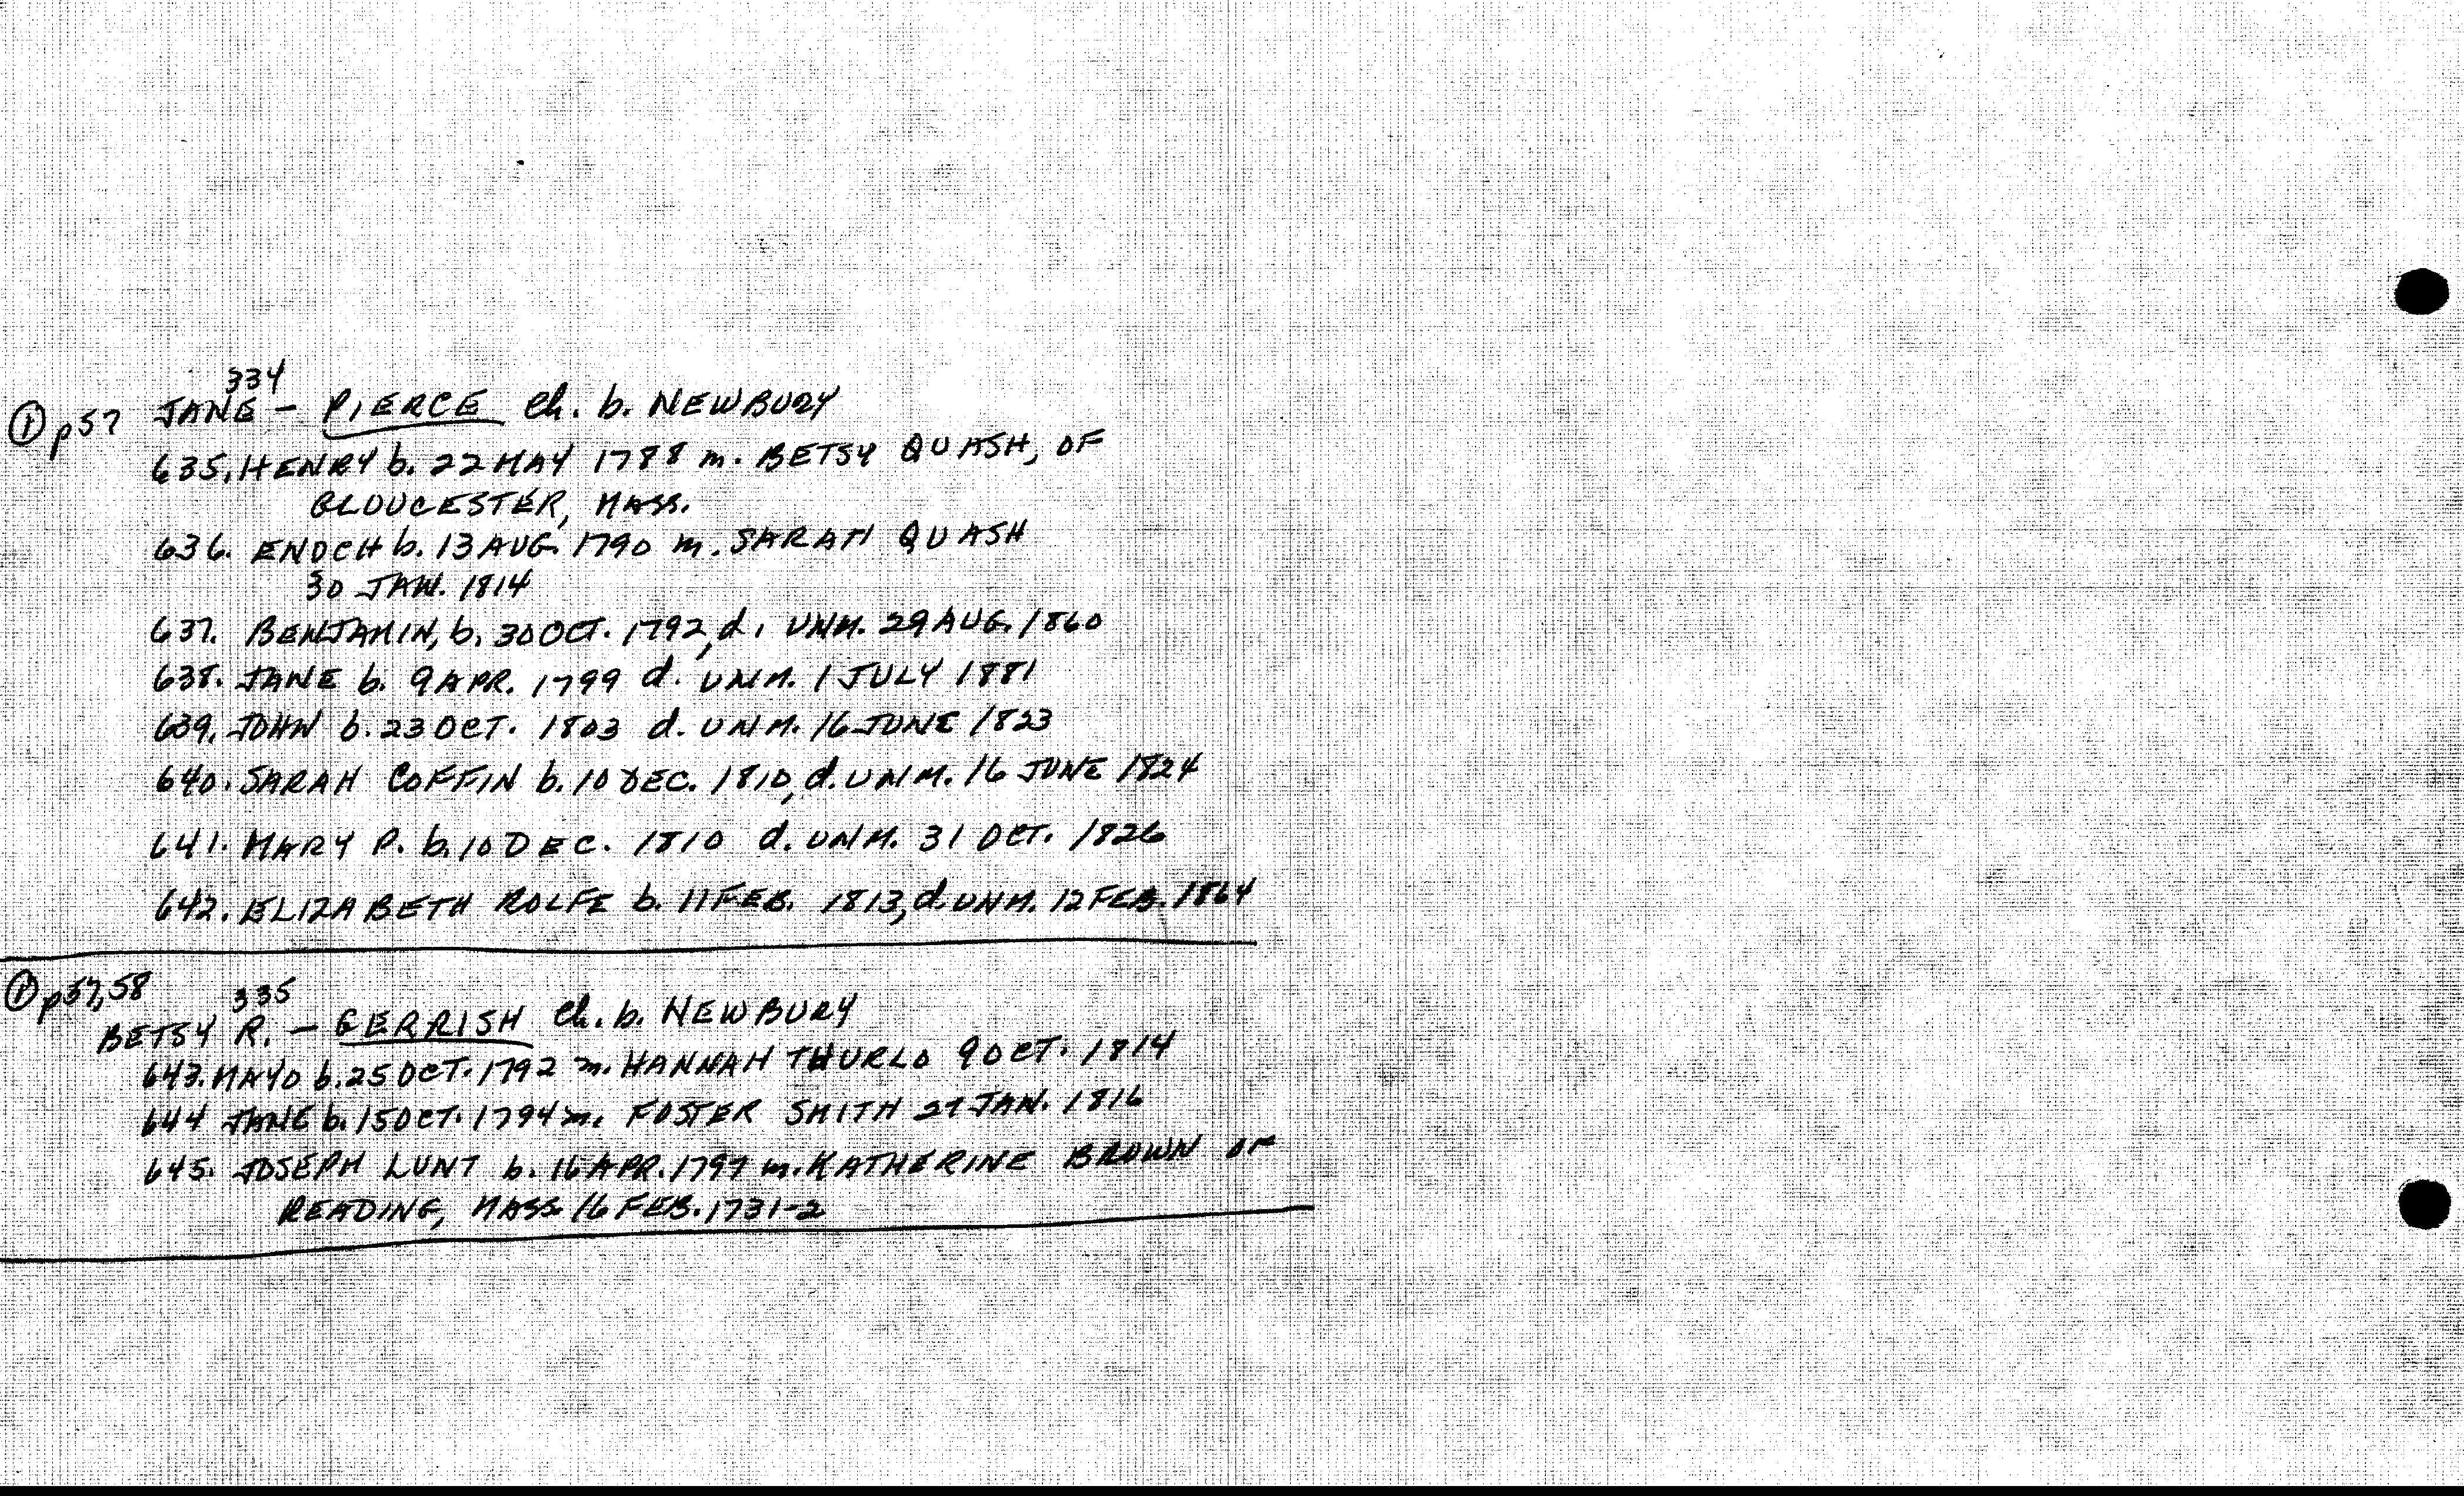 334
① p57 JANE - PIERCE Ch. b. NEWBURY
635. HENRY b. 22 MAY 1788 m. BETSY QUASH, OF
GLOUCESTER, MASS.
636. ENOCH b. 13 AUG. 1790 m. SARAH QUASH
30 JAN. 1814
637. BENJAMIN, b. 30 OCT. 1792, d. UNM. 29 AUG. 1860
638. JANE b. 9 APR. 1799 d. UNM. 1 JULY 1881
639. JOHN b. 23 OCT. 1803 d. UNM. 16 JUNE 1823
640. SARAH COFFIN b. 10 DEC. 1810, d. UNM. 16 JUNE 1824
641. MARY P. b. 10 DEC. 1810 d. UNM. 31 OCT. 1826
642. ELIZABETH ROLFE b. 11 FEB. 1813, d. UNM. 12 FEB. 1864
① p57,58
335
BETSY R. - GERRISH Ch. b. NEWBURY
643. MAYO b. 25 OCT. 1792 m. HANNAH THURLO 9 OCT. 1814
644 JANE b. 15 OCT. 1794 m. FOSTER SMITH 27 JAN. 1816
645. JOSEPH LUNT b. 16 APR. 1797 m. KATHERINE BROWN OF
READING, MASS 16 FEB. 1731-2